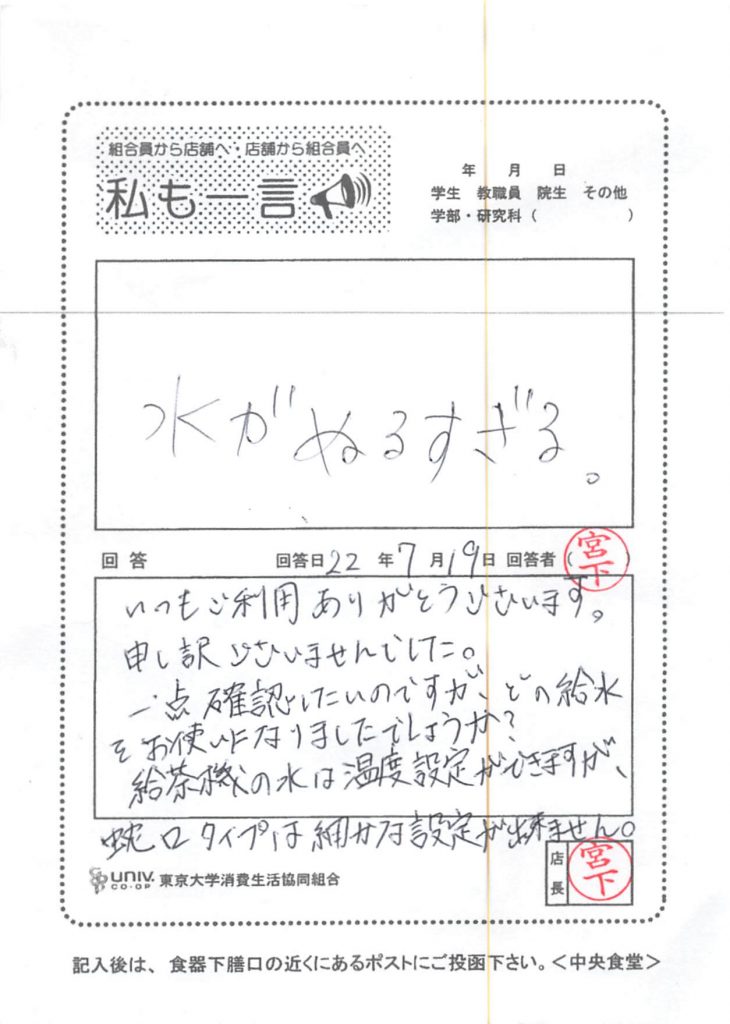 組合員から店舗へ・店舗から組合員へ
私も一言
年 月 日
学生 教職員 院生 その他
学部・研究科( )
水がぬるすぎる。
回答 回答日22年7月19日 回答者(宮下)
いつもご利用ありがとうございます。
申し訳ございませんでした。
一点確認したいのですが、どの給水
をお使いになりましたでしょうか?
給茶機の水は温度設定ができますが、
蛇口タイプは細かな設定が出来ません。
店長 宮下
UNIV. CO-OP 東京大学消費生活協同組合
記入後は、食器下膳口の近くにあるポストにご投函下さい。<中央食堂>